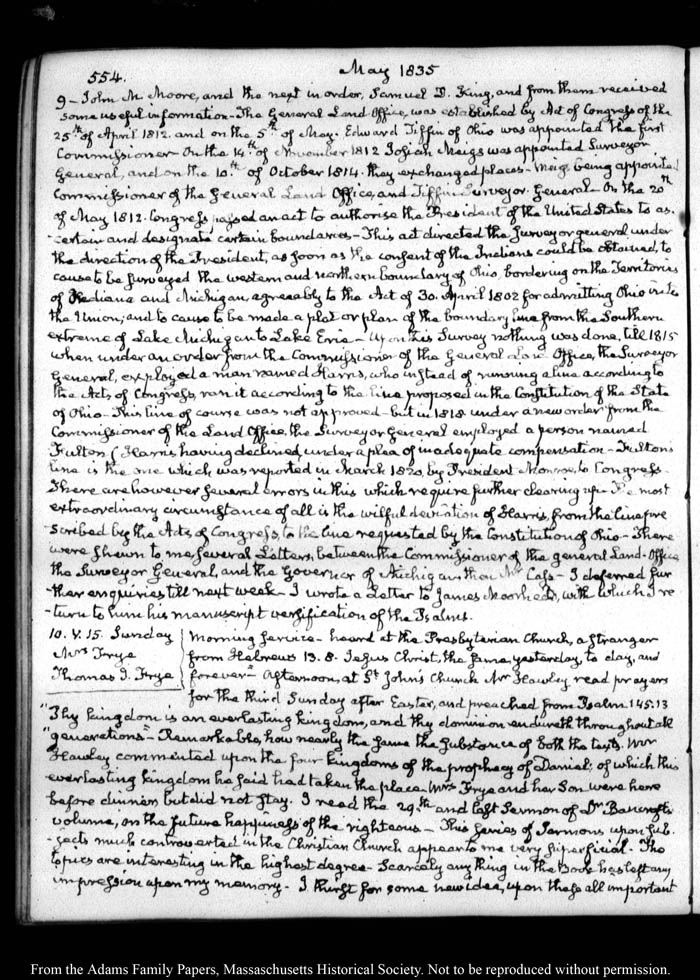 554.
May 1835
9 - John M. Moore, and the next in order, Samuel D. King, and from them received
some useful information - The General Land Office, was established by Act of Congress of the
25th of April 1812. and on the 5th of May. Edward Tiffin of Ohio was appointed the first
Commissioner - On the 14th of November 1812 Josiah Meigs was appointed Surveyor
General, and on the 10th of October 1814. they exchanged places - Meigs being appointed
Commissioner of the General Land Office, and Tiffin Surveyor General - On the 20th
of May 1812. Congress passed an act to authorise the President of the United States to as-
-certain and designate certain boundaries - This act directed the Surveyor general under
the direction of the President, as soon as the consent of the Indians could be obtained, to
cause to be surveyed the western and northern boundary of Ohio, bordering on the Territories
of Indiana and Michigan, agreeably to the Act of 30. April 1802 for admitting Ohio into
the Union; and to cause to be made a plat or plan of the boundary line from the Southern
extreme of Lake Michigan to Lake Erie - Upon this Survey nothing was done, till 1815
when under an order from the Commissioner of the General Land Office, the Surveyor
General, employed a man named Harris, who instead of running a line according to
the Acts of Congress, ran it according to the line proposed in the Constitution of the State
of Ohio - This line of course was not approved - but in 1818 under a new order from the
Commissioner of the Land Office, the Surveyor General employed a person named
Fulton (Harris, having declined, under a plea of inadequate compensation - Fulton's
line is the one which was reported in March 1820, by President Monroe, to Congress.
There are however several errors in this which require further clearing up - The most
extraordinary circumstance of all is the wilful deviation of Harris, from the line pre
-scribed by the Acts of Congress, to the line requested by the Constitution of Ohio - There
were shewn to me several Letters, between the Commissioner of the general Land-Office
the Surveyor General, and the Governor of Michigan, then Mr Cass - I deferred fur
ther enquiries till next week - I wrote a Letter to James Moorhead, with which I re
-turn to him his manuscript versification of the Psalms.
10. V. 15. Sunday
Mrs Frye
Thomas J. Frye
Morning service - heard at the Presbyterian Church, a stranger
from Hebrews 13. 8. Jesus Christ, the same yesterday, to day, and
forever - Afternoon, at St John's Church Mr Hawley read prayers
for the third Sunday after Easter, and preached from Psalm 145. 13
"Thy kingdom is an everlasting kingdom, and thy dominion endureth throughout all
"generations" - Remarkable, how nearly the same the substance of both the texts. Mr
Hawley commented upon the four kingdoms of the prophecy of Daniel; of which this
everlasting kingdom he said had taken the place. Mrs Frye and her Son were here
before dinner but did not stay. I read the 29th and last Sermon of Dr Bancroft's
volume, on the future happiness of the righteous - This series of Sermons upon sub-
-jects much controverted in the Christian Church appear to me very superficial - The
topics are interesting in the highest degree - Scarcely any thing in the Book has left any
impression upon my memory - I thirst for some new idea, upon these all important
From the Adams Family Papers, Massachusetts Historical Society. Not to be reproduced without permission.